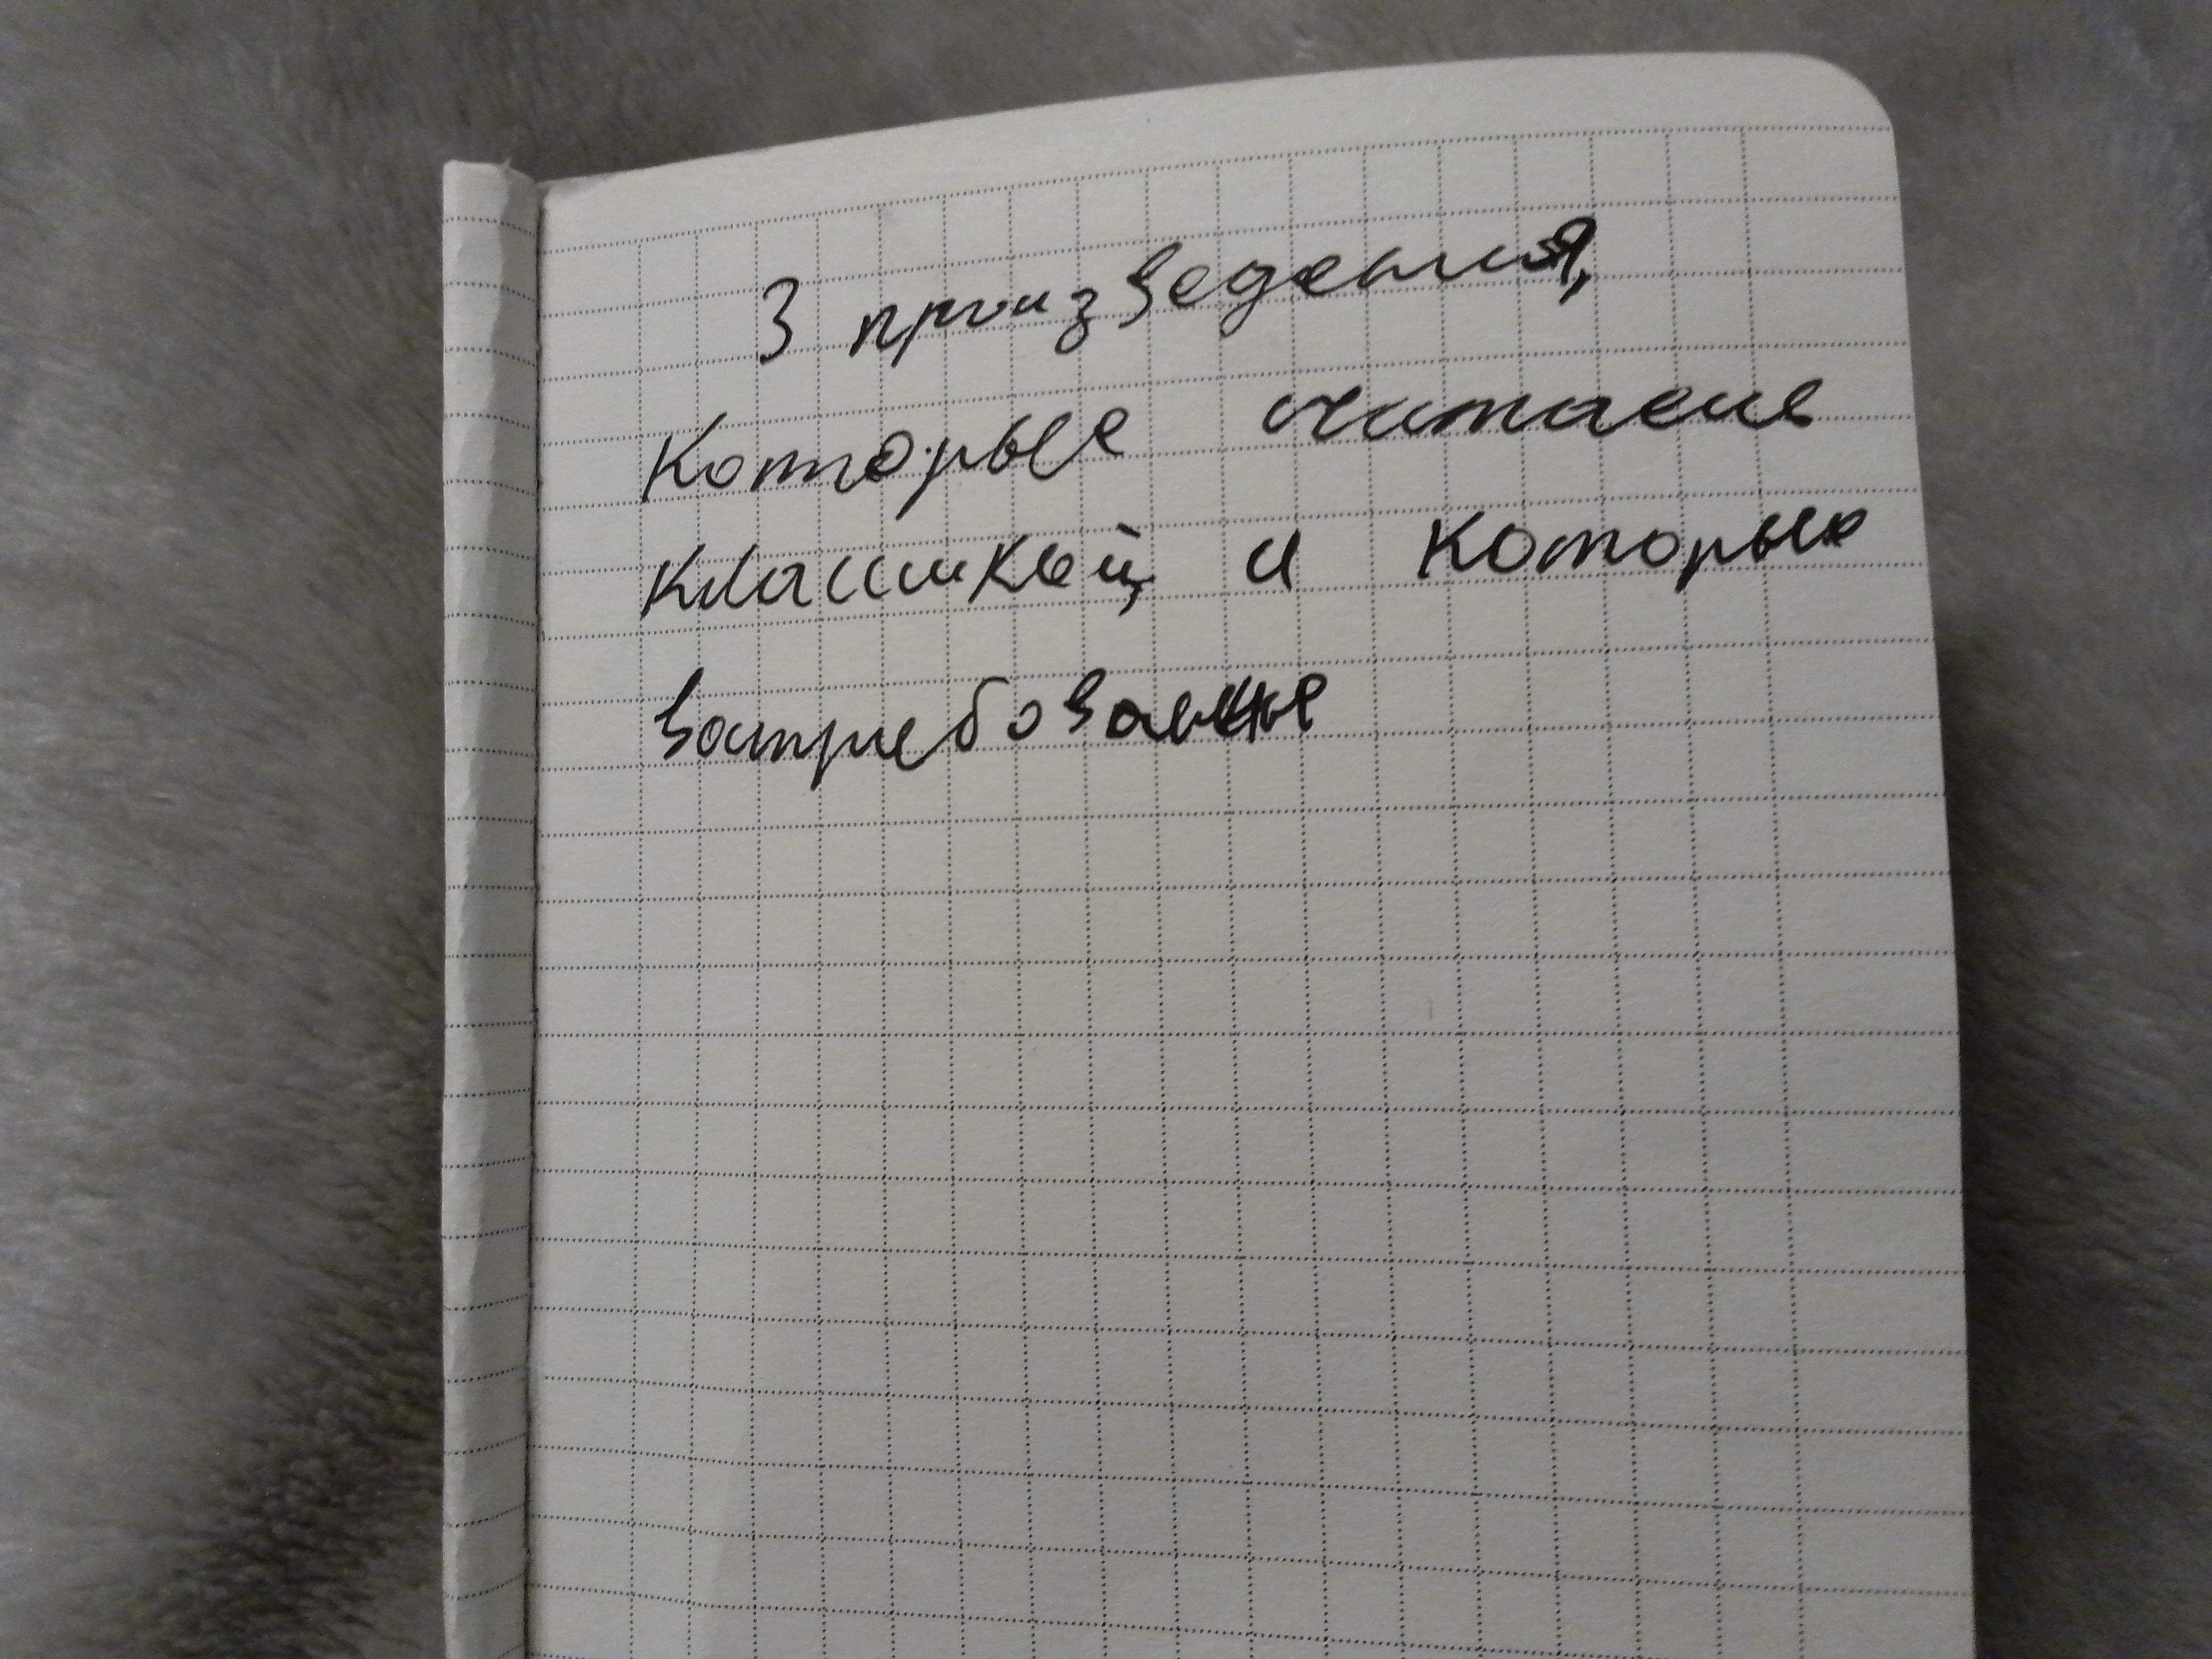 3 произведения,
которые считаешь
классикой, и которые
востребованные